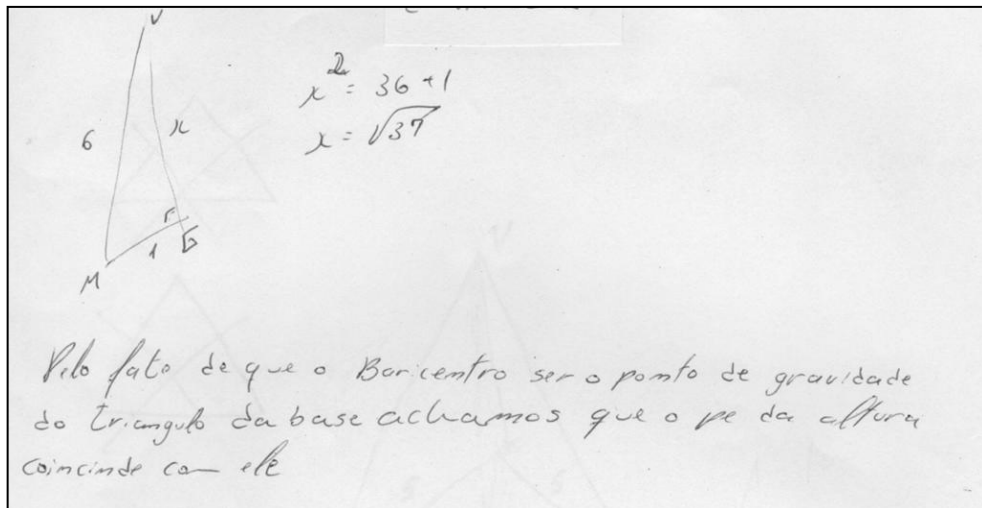 V
x² = 36 + 1
x = √37
6
x
1
G
M
Pelo fato de que o Baricentro ser o ponto de gravidade
do triangulo da base achamos que o pe da altura
coincinde com ele